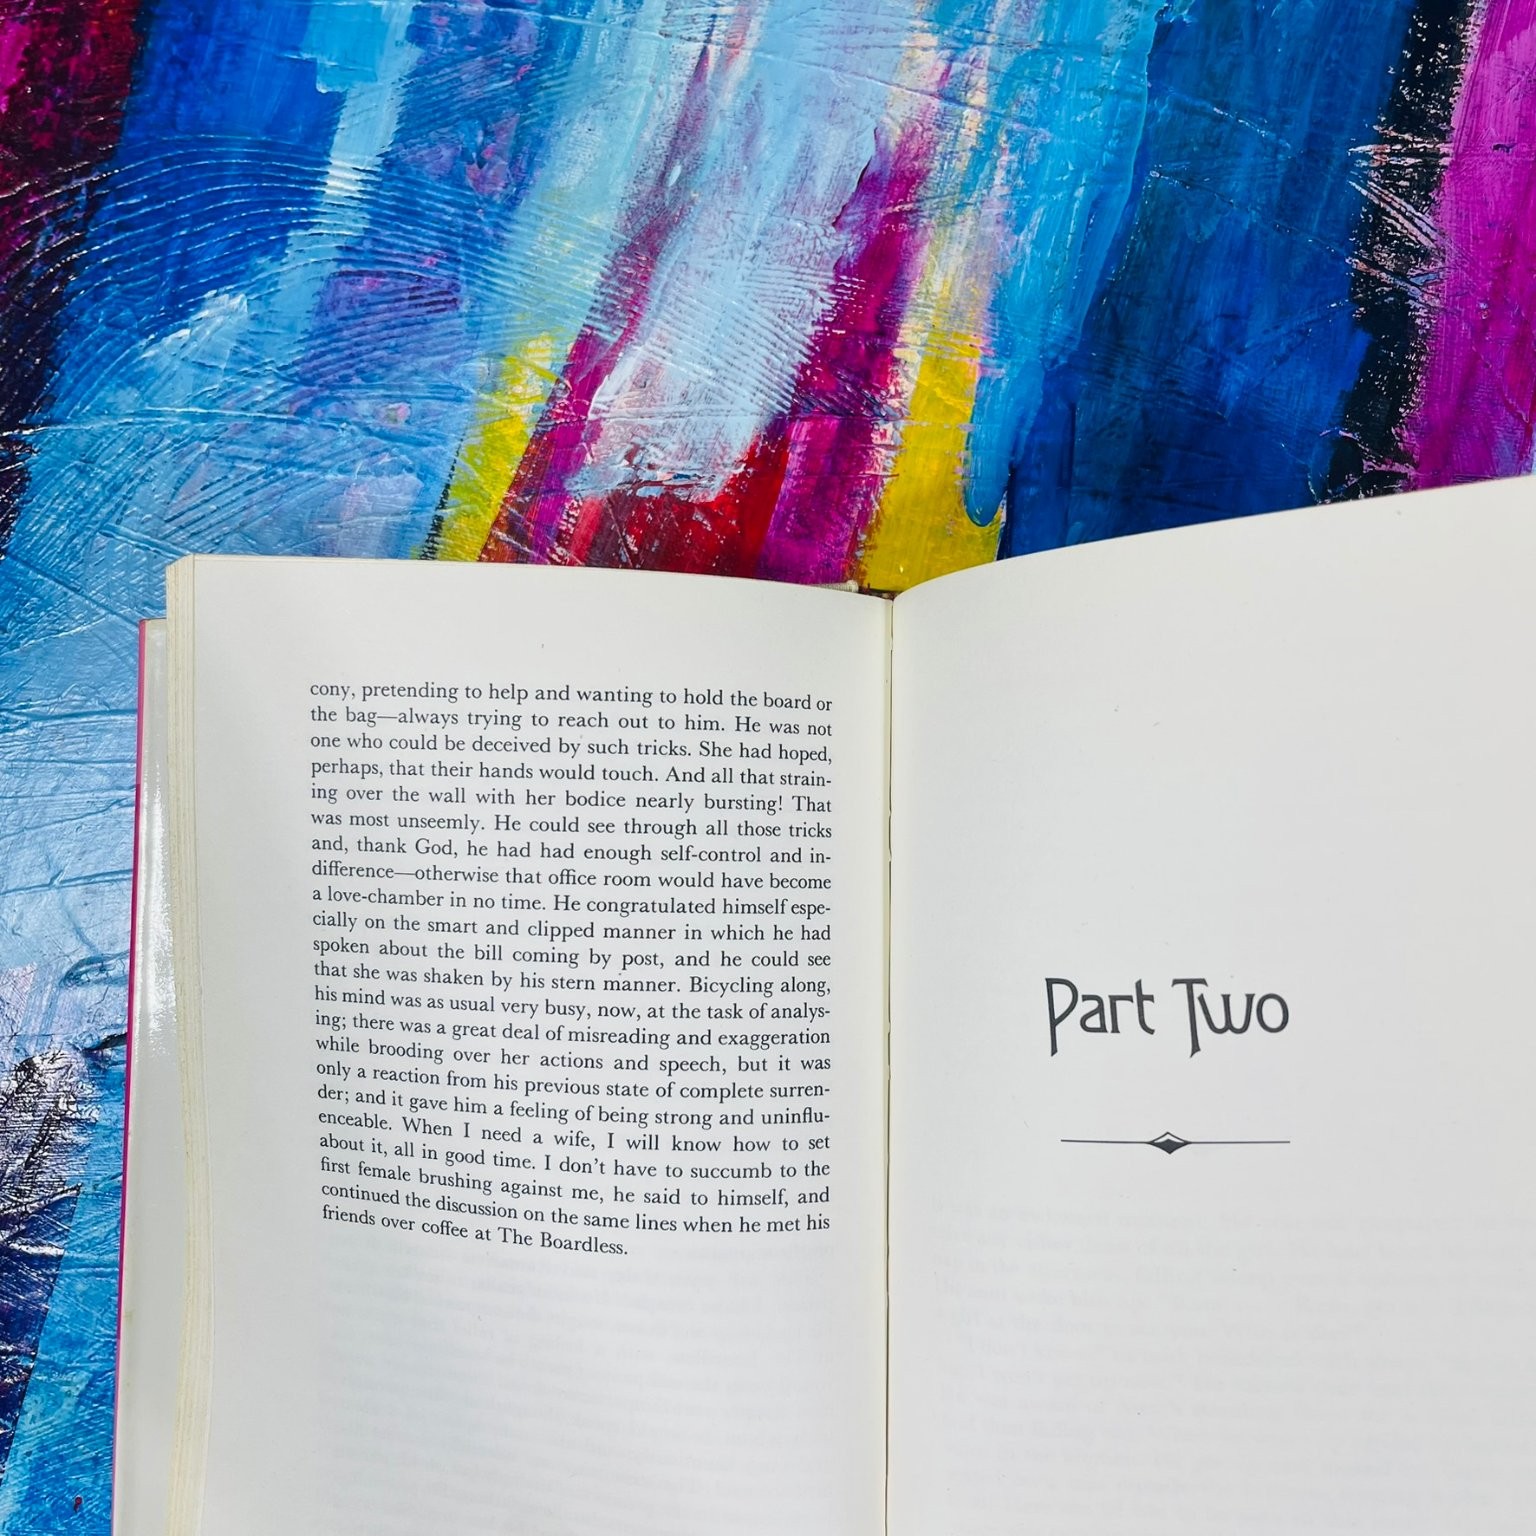 cony, pretending to help and wanting to hold the board or
the bag—always trying to reach out to him. He was not
one who could be deceived by such tricks. She had hoped,
perhaps, that their hands would touch. And all that strain-
ing over the wall with her bodice nearly bursting! That
was most unseemly. He could see through all those tricks
and, thank God, he had had enough self-control and in-
difference—otherwise that office room would have become
a love-chamber in no time. He congratulated himself espe-
cially on the smart and clipped manner in which he had
spoken about the bill coming by post, and he could see
that she was shaken by his stern manner. Bicycling along,
his mind was as usual very busy, now, at the task of analys-
ing; there was a great deal of misreading and exaggeration
while brooding over her actions and speech, but it was
only a reaction from his previous state of complete surren-
der; and it gave him a feeling of being strong and uninflu-
enceable. When I need a wife, I will know how to set
about it, all in good time. I don't have to succumb to the
first female brushing against me, he said to himself, and
continued the discussion on the same lines when he met his
friends over coffee at The Boardless.
Part Two